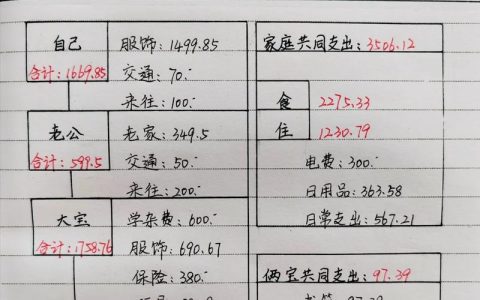 自己
合计:1669.85
服饰:1499.85
交通:70.-
来往:100.-
老公
合计:599.5
老家:349.5
交通:50.-
来往:200.-
大宝
合计:1758.76
学杂费:600.-
服饰:690.67
保险:380.-
家庭共同支出:3506.12
食 2275.33
住 1230.79
电费:300.-
日用品:363.58
日常支出:567.21
俩宝共同支出:97.39